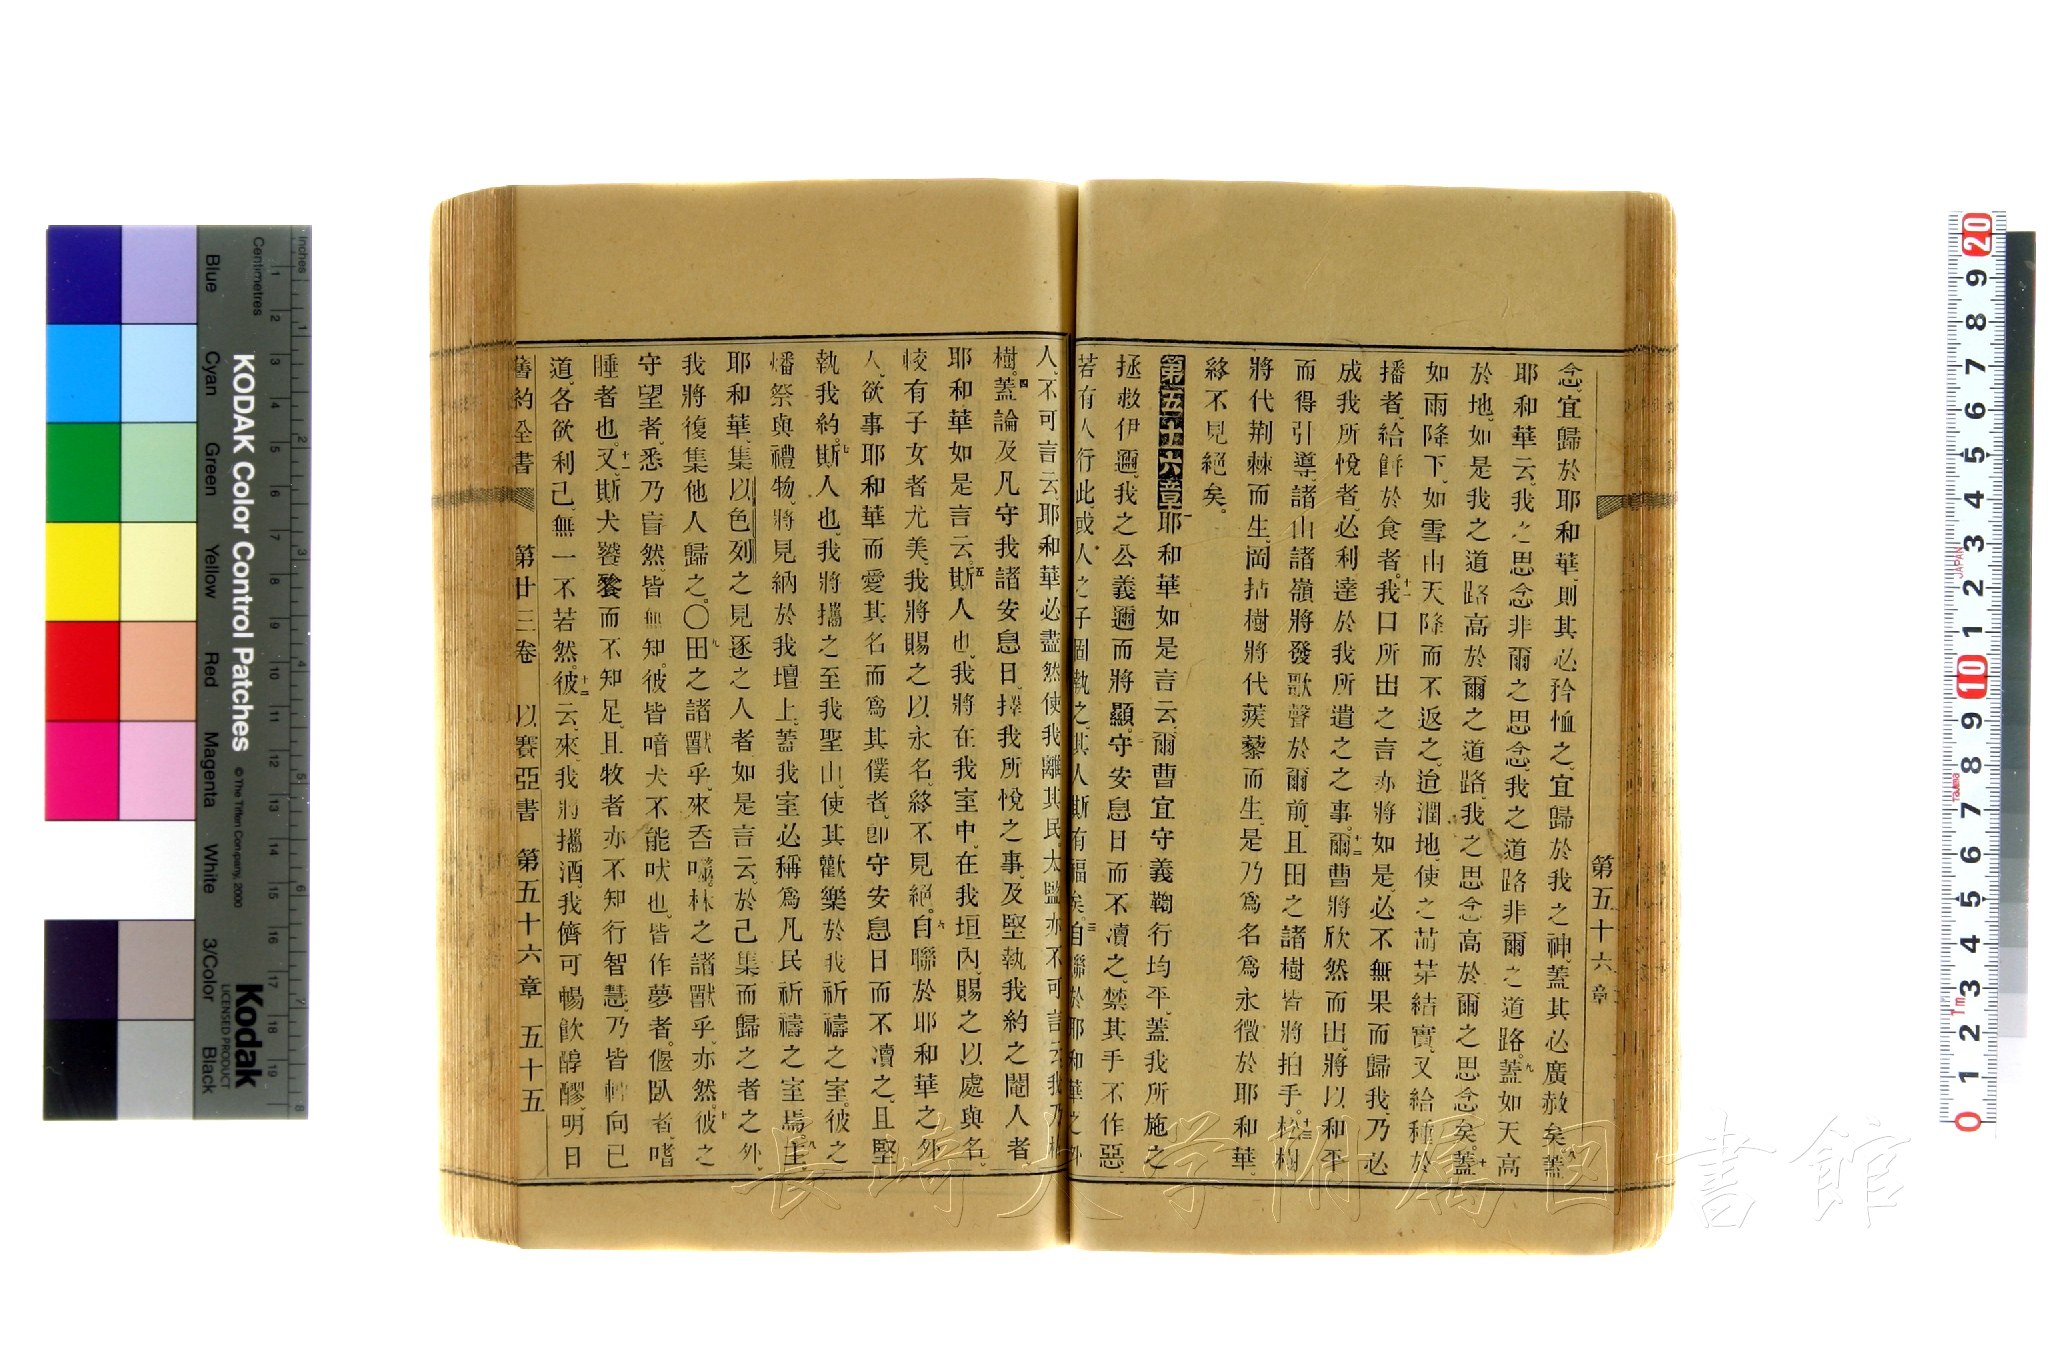 第五十六章
念宜歸於耶和華、則其必矜恤之、宜歸於我之神、蓋其必廣赦矣、八蓋
耶和華云、我之思念非爾之思念、我之道路非爾之道路。九蓋如天高
於地、如是我之道路高於爾之道路、我之思念高於爾之思念矣。十蓋
如雨降下、如雪由天降而不返之、迨潤地、使之萌芽結實、又給種於
播者、給餅於食者。十一我口所出之言亦將如是、必不無果而歸我、乃必
成我所悅者、必利達於我所遣之之事。十二爾曹將欣然而出、將以和平
而得引導、諸山諸嶺將發歌聲於爾前、且田之諸樹皆將拍手。十三松樹
將代荆棘而生、岡拈樹將代蒺藜而生、是乃爲名爲永徵於耶和華、
終不見絕矣。
第五十六章一耶和華如是言云、爾曹宜守義鞫行均平、蓋我所施之
拯救伊邇、我之公義邇而將顯。守安息日而不瀆之、禁其手不作惡、
若有人行此、或人之子固執之、其人斯有福矣。三自聯於耶和華之外
人、不可言云、耶和華必盡然使我離其民、太監亦不可言云、我乃枯
樹。四蓋論及凡守我諸安息日、擇我所悅之事、及堅執我約之閹人者
耶和華如是言云、五斯人也、我將在我室中、在我垣內、賜之以處與名、
較有子女者尤美、我將賜之以永名、終不見絕。六自聯於耶和華之外
人、欲事耶和華而愛其名而爲其僕者、卽守安息日而不瀆之、且堅
執我約。七斯人也、我將攜之至我聖山、使其歡樂於我祈禱之室。彼之
燔祭與禮物、將見納於我壇上、蓋我室必稱爲凡民祈禱之室焉。八主
耶和華、集以色列之見逐之人者如是言云、於己集而歸之者之外、
我將復集他人歸之。〇九田之諸獸乎、來呑噬。林之諸獸乎、亦然。十彼之
守望者、悉乃盲然、皆無知、彼皆喑犬不能吠也、皆作夢者、偃臥者、嗜
睡者也。十一又斯犬饕餮而不知足、且牧者亦不知行智慧、乃皆轉向己
道、各欲利己、無一不若然。十二彼云、來、我將攜酒、我儕可暢飮醇醪、明日
舊約全書 第廿三卷 以賽亞書 第五十六章 五十五
KODAK Color Control Patches
© The Tiffen Company, 2000
Kodak
LICENSED PRODUCT
Inches
Centimetres
Blue
Cyan
Green
Yellow
Red
Magenta
White
3/Color
Black
JAPAN
長崎大学附属図書館